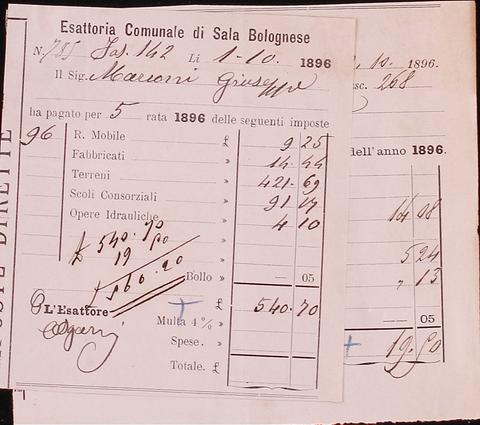 Esattoria Comunale di Sala Bolognese
N. 785 Fas. 142 Li 1-10. 1896
Il Sig. Marconi Giuseppe
ha pagato per 5 rata 1896 delle seguenti imposte
96 R. Mobile £ 9 25
Fabbricati » 14. 44
Terreni » 421. 69
Scoli Consorziali » 91 17
Opere Idrauliche » 4 10
£ 540. 70
19 90
£ 560. 20
Bollo » — 05
£ 540. 70
L'Esattore
Multa 4 % »
Spese. »
Totale. £
10. 1896.
sc. 268
dell'anno 1896.
14 08
5 24
" 13
— 05
19. 50